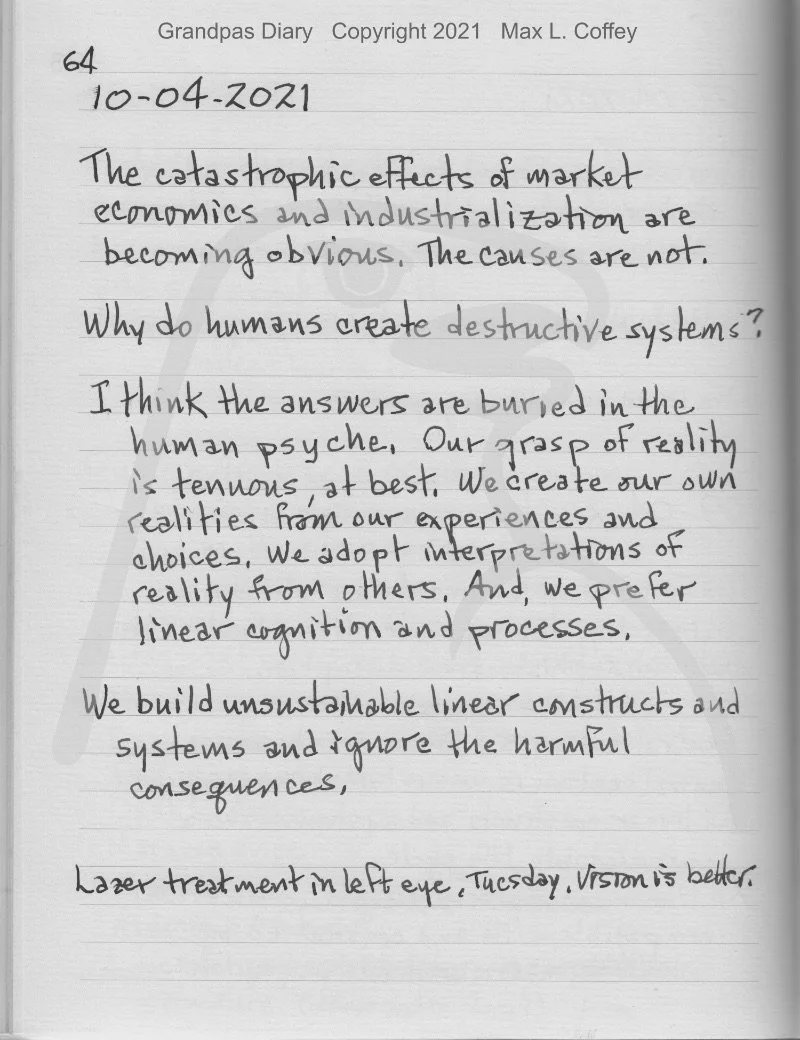 Grandpas Diary Copyright 2021 Max L. Coffey
64
10-04-2021
The catastrophic effects of market
economics and industrialization are
becoming obvious. The causes are not.
Why do humans create destructive systems?
I think the answers are buried in the
human psyche. Our grasp of reality
is tenuous, at best. We create our own
realities from our experiences and
choices. We adopt interpretations of
reality from others. And, we prefer
linear cognition and processes.
We build unsustainable linear constructs and
systems and ignore the harmful
consequences.
Lazer treatment in left eye, Tuesday. Vision is better.